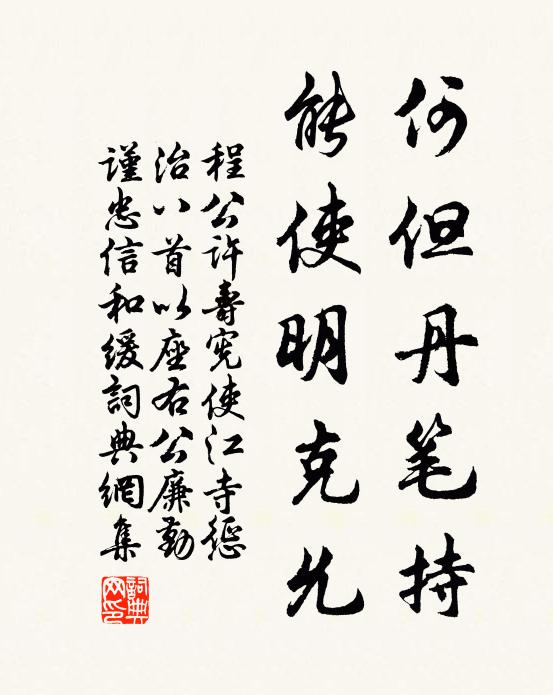 何但丹笔持
能使明克允
程公许寿宪使江寺惩
治八首以座右公廉勤
谨忠信和缓词典網集
詞典网印